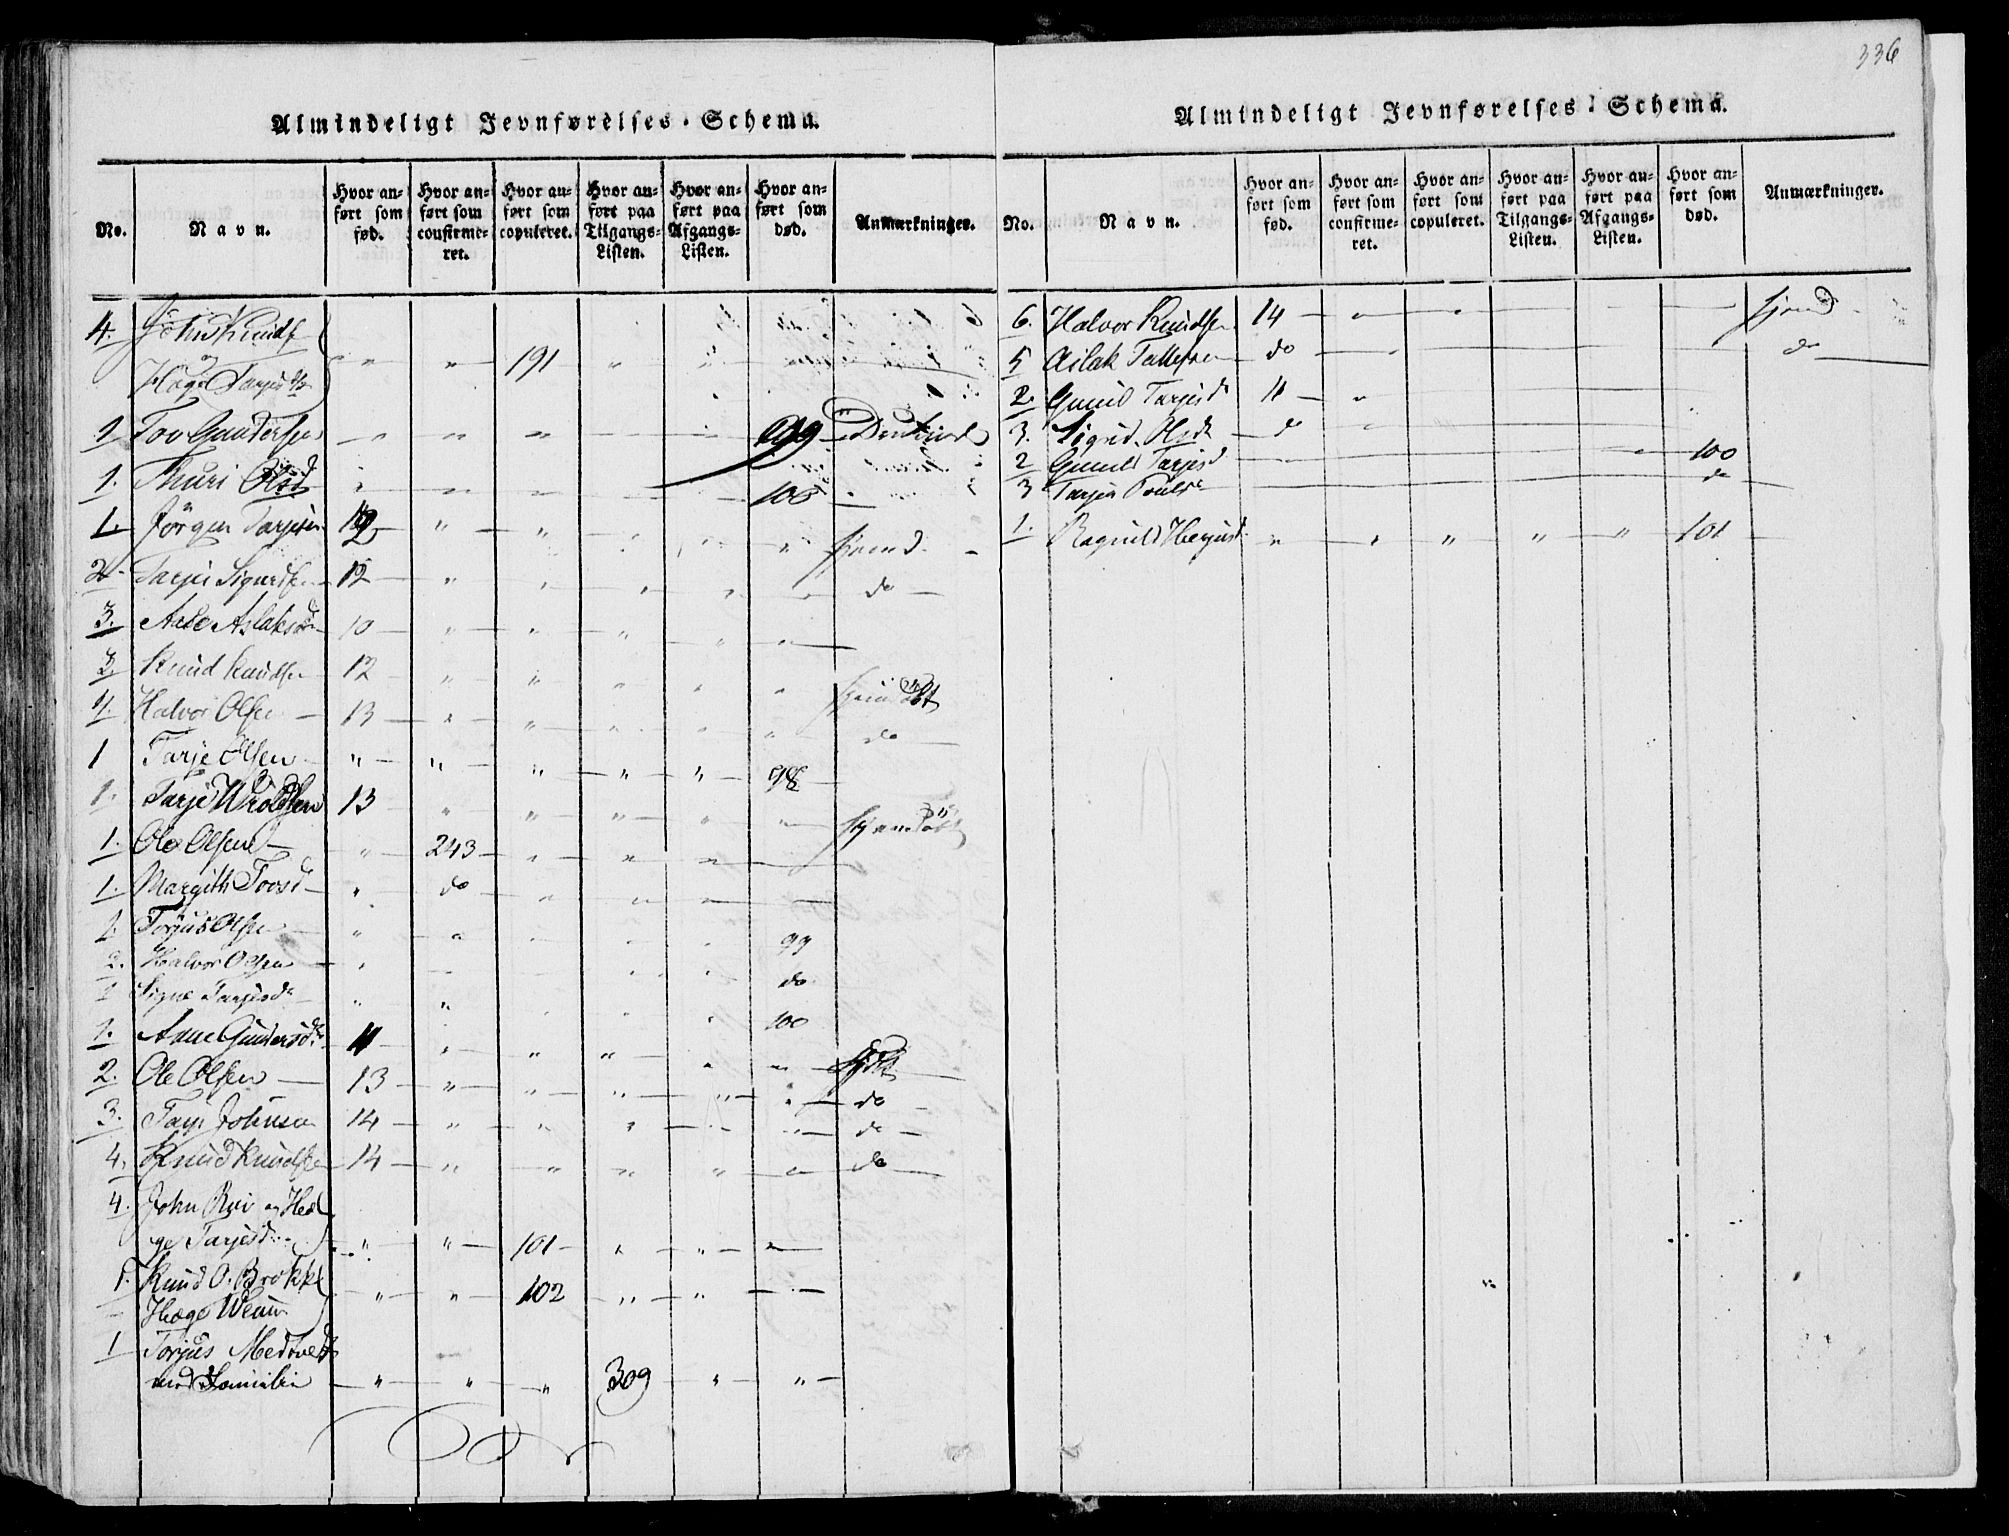 336
Almindeligt Jevnførelses-Schema.
No. Navn. Hvor anført som fød. Hvor anført som confirmeret. Hvor anført som copuleret. Hvor anført paa Tilgangs-Listen. Hvor anført paa Afgangs-Listen. Hvor anført som død. Anmærkninger.
4. John Knuds
og
Hæge Tarjesdtr " " 191 " "
1 Tov Gundersen " " " " 99
1. Thuri Olsd " " " 100
1. Jörgen Tarjesen 12 " " " " " hjemd
2. Tarjei Sigurdsen 12 " " " " " do
3. Aase Aslaksd 10 " " " " "
3 Knud Knudsen 12 " " " " "
4. Halvor Olsen 13 " " " " " do
1 Tarje Olsen " " " " " 98
1. Tarje Wroldsen 13 " " " " "
1. Ole Olsen " 243 " " "
1. Margith Tovsd " do " " "
1. Torjus Olsen " " " " " 99
2. Halvor Olsen " " " " do
1 Signe Tarjesd " " " " " 100
1. Anne Gundersd. 11 " " " " "
2. Ole Olsen 13 " " " " " do
3. Tarje Johnsen 14 " " " " " do
4. Knud Knudsen 14 " " " " " do
4. John Rui og Hæ
ge Tarjesd. " " 101 " " "
1. Knud O. Brokke
Hæge Weum " " 102 " " "
1 Torjus Medtvedt
med Familie " " " 309 " "
Almindeligt Jevnførelses-Schema.
No. Navn. Hvor anført som fød. Hvor anført som confirmeret. Hvor anført som copuleret. Hvor anført paa Tilgangs-Listen. Hvor anført paa Afgangs-Listen. Hvor anført som død. Anmærkninger.
6. Halvor Knudsen 14 " " hjemd
5 Aslak Tallefsen do do
2. Gunild Tarjesd 11 "
3. Sigrid Olsd do "
2 Gunild Tarjesd " 100
3 Tarjei do
1. Ragnild Herjusd " " " " " 101